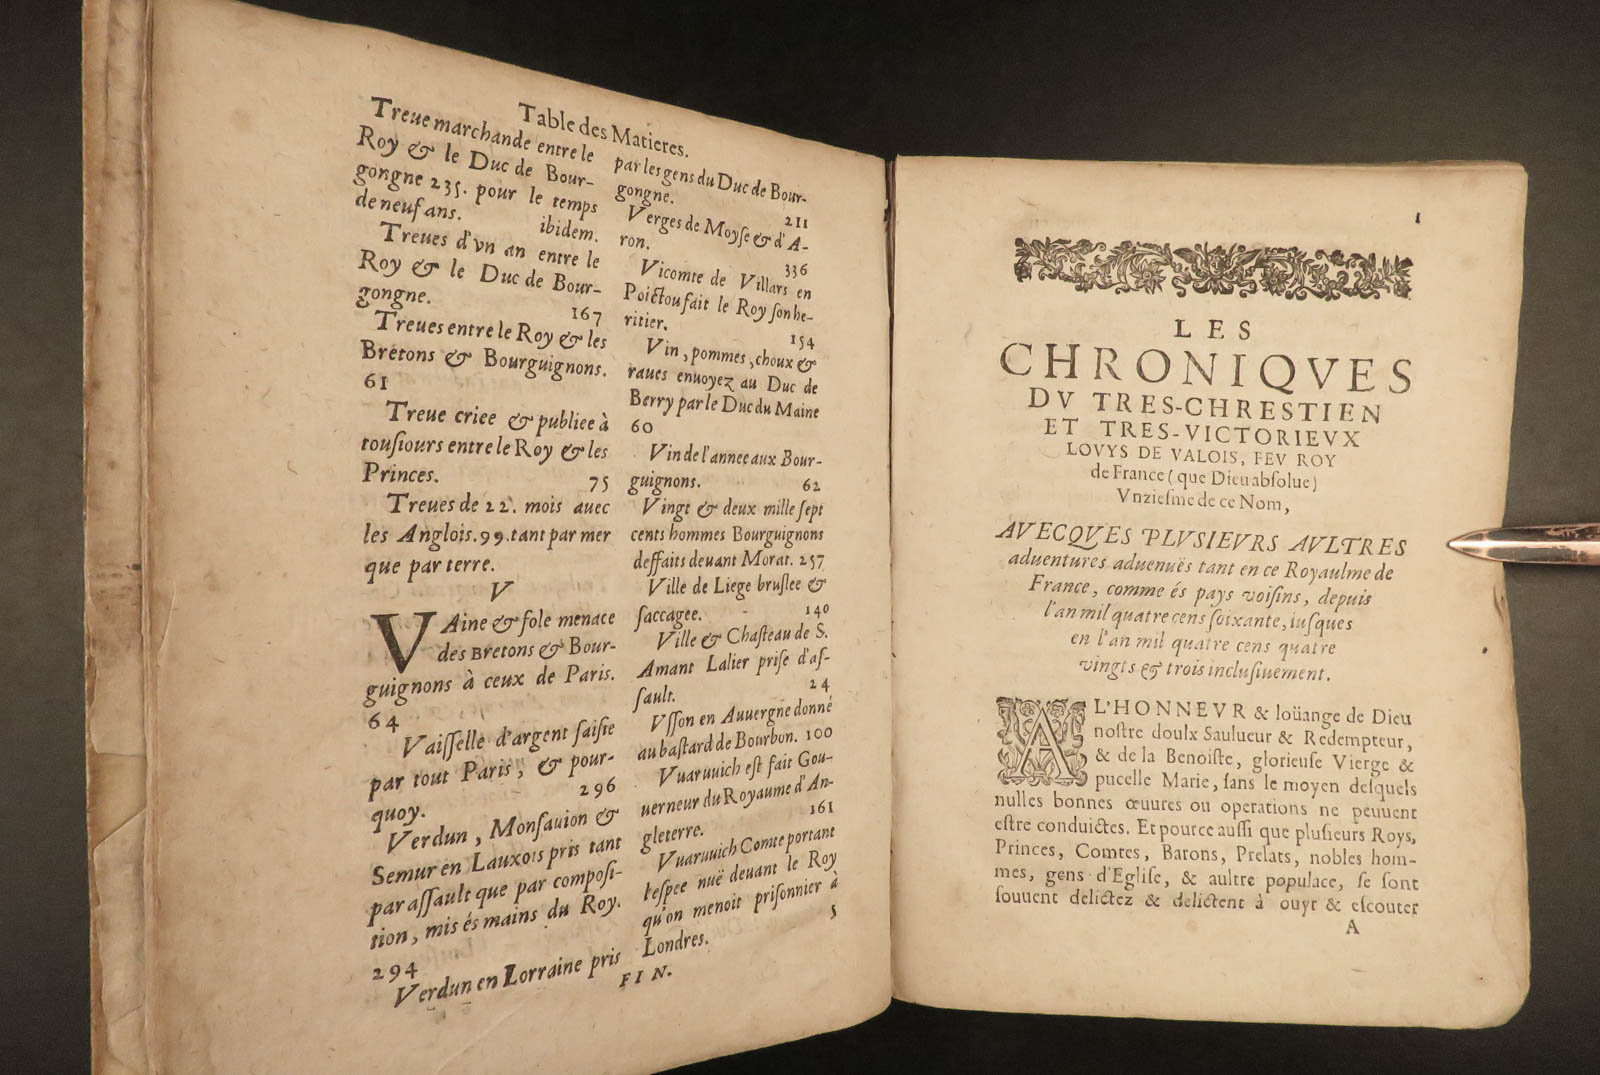 Table des Matieres.
Treue marchande entre le
Roy & le Duc de Bour-
gongne 235. pour le temps
de neuf ans. ibidem.
Treues d'vn an entre le
Roy & le Duc de Bour-
gongne. 167
Treues entre le Roy & les
Bretons & Bourguignons.
61
Treue criee & publiee à
touſiours entre le Roy & les
Princes. 75
Treues de 22. mois auec
les Anglois. 99. tant par mer
que par terre.
V
VAine & fole menace
des Bretons & Bour-
guignons à ceux de Paris.
64
Vaiſſelle d'argent ſaiſie
par tout Paris, & pour-
quoy. 296
Verdun, Monſauion &
Semur en Lauxois pris tant
par aſſault que par compoſi-
tion, mis és mains du Roy.
294
Verdun en Lorraine pris
par les gens du Duc de Bour-
gongne. 211
Verges de Moyſe & d'A-
ron. 336
Vicomte de Villars en
Poictou fait le Roy ſon he-
ritier. 154
Vin, pommes, choux &
raues enuoyez au Duc de
Berry par le Duc du Maine
60
Vin de l'annee aux Bour-
guignons. 62
Vingt & deux mille ſept
cents hommes Bourguignons
deffaits deuant Morat. 257
Ville de Liege bruſlee &
ſaccagee. 140
Ville & Chaſteau de S.
Amant Lalier priſe d'aſ-
ſault. 24
Vſſon en Auuergne donné
au baſtard de Bourbon. 100
Vuaruuich eſt fait Gou-
uerneur du Royaume d'An-
gleterre. 161
Vuaruuich Comte portant
l'eſpee nuë deuant le Roy
qu'on menoit priſonnier à
Londres. 5
FIN.
1
LES
CHRONIQVES
DV TRES-CHRESTIEN
ET TRES-VICTORIEVX
LOVYS DE VALOIS, FEV ROY
de France (que Dieu abſolue)
Vnzieſme de ce Nom,
AVECQVES PLVSIEVRS AVLTRES
aduentures aduenuës tant en ce Royaulme de
France, comme és pays voiſins, depuis
l'an mil quatre cens ſoixante, iuſques
en l'an mil quatre cens quatre
vingts & trois incluſiuement.
A L'HONNEVR & loüange de Dieu
noſtre doulx Saulueur & Redempteur,
& de la Benoiſte, glorieuſe Vierge &
pucelle Marie, ſans le moyen deſquels
nulles bonnes œuures ou operations ne peuuent
eſtre conduictes. Et pource auſſi que pluſieurs Roys,
Princes, Comtes, Barons, Prelats, nobles hom-
mes, gens d'Egliſe, & aultre populace, ſe ſont
ſouuent delictez & delictent à ouyr & eſcouter
A